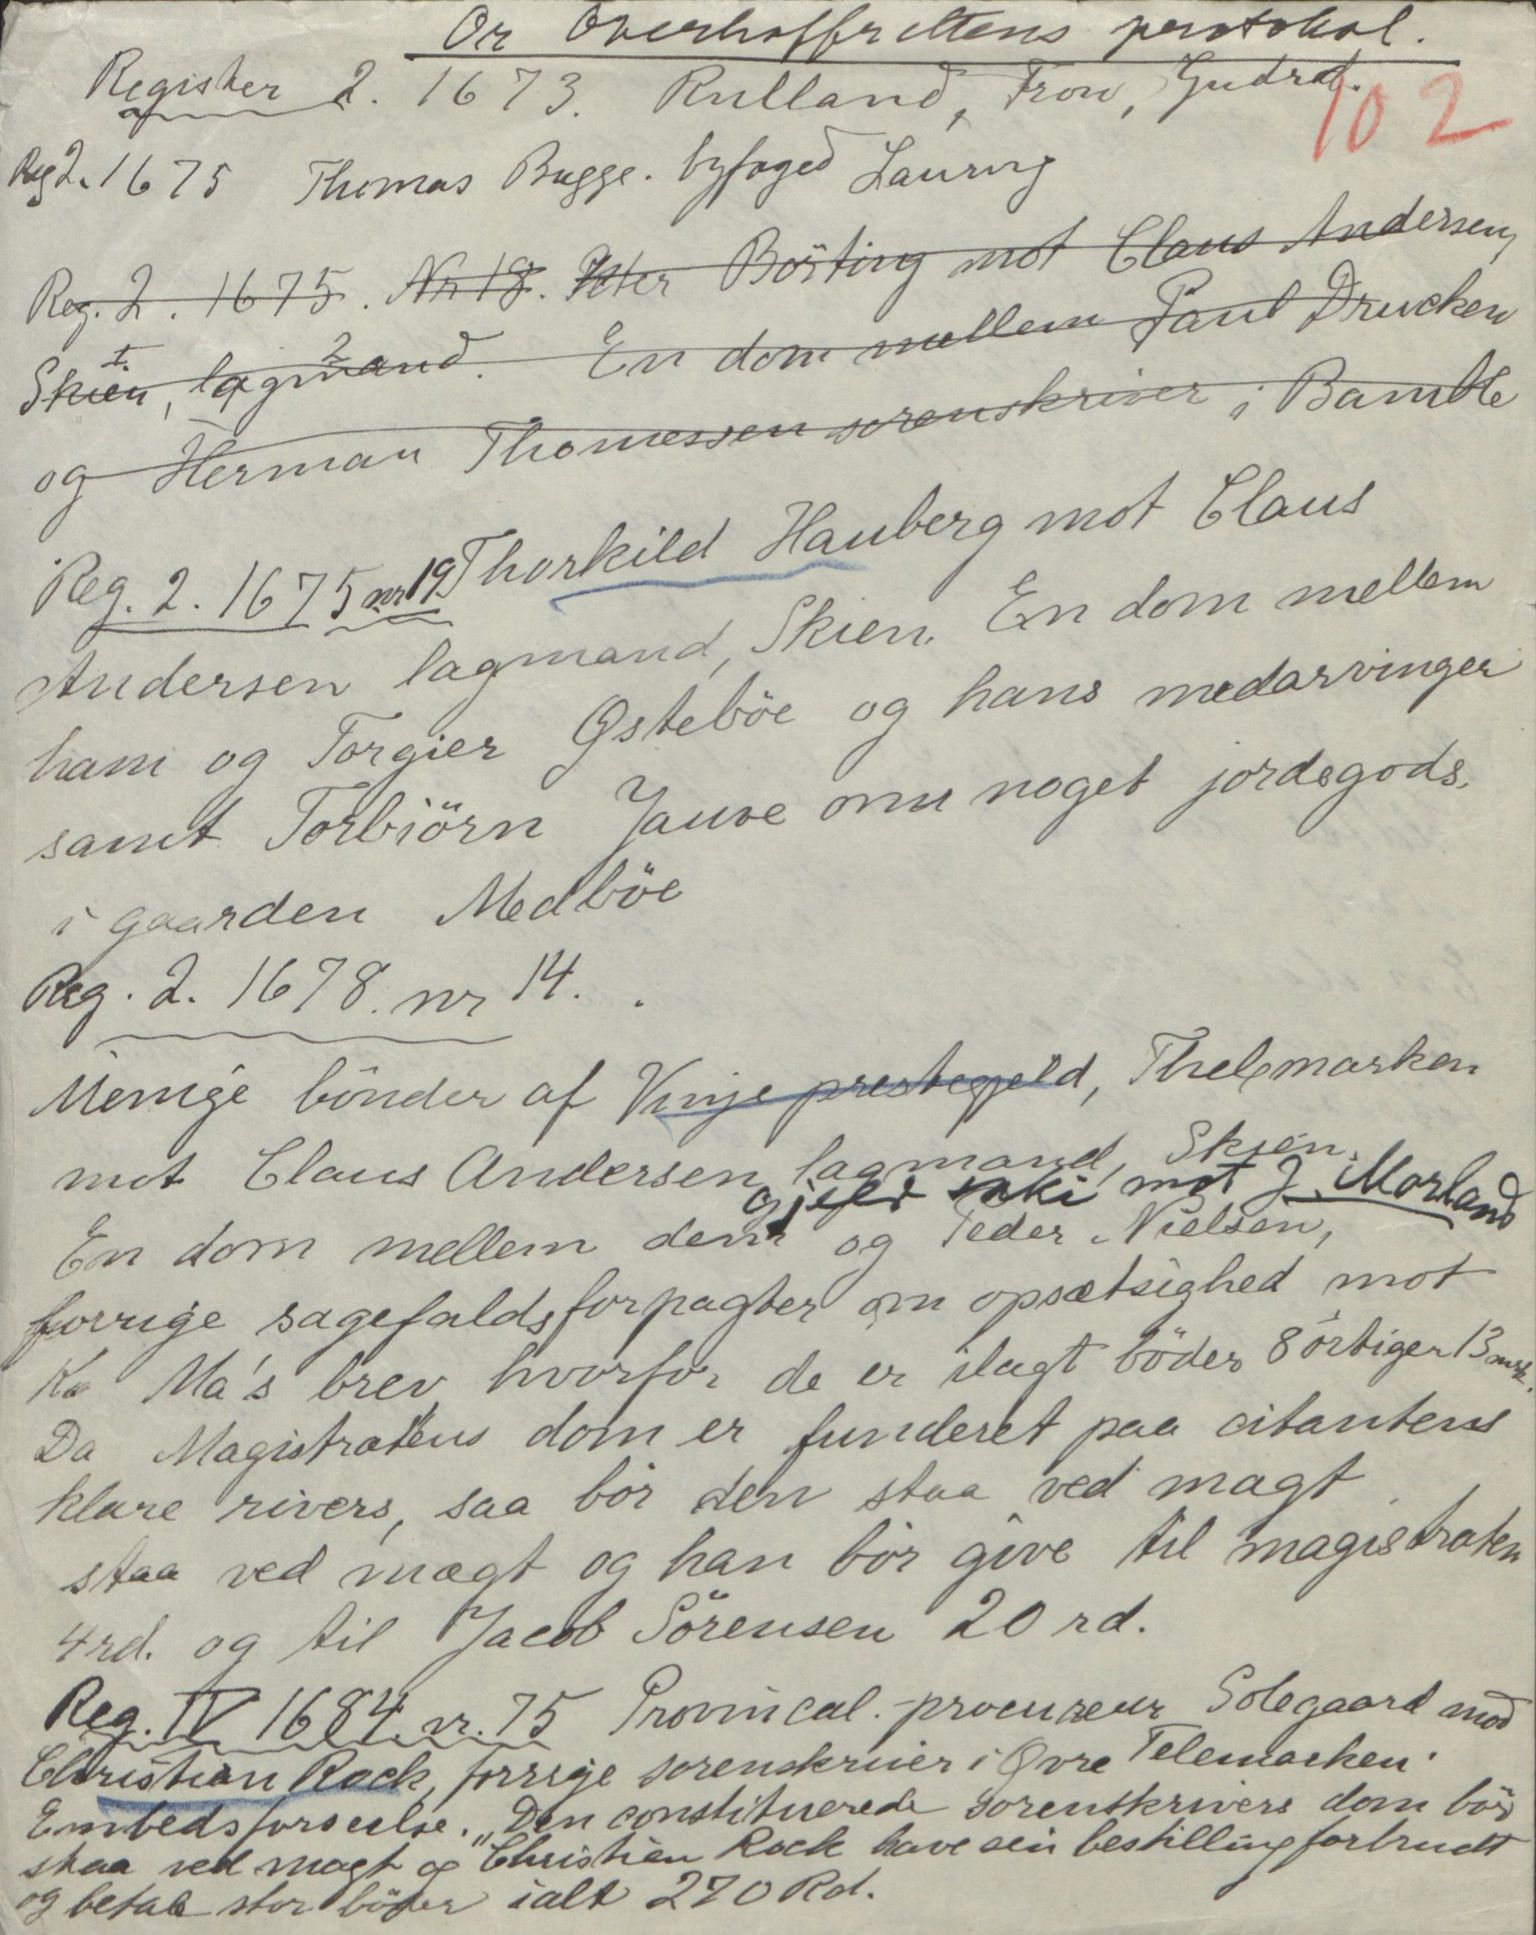 Or Overhoffrettens protokol.
102
Register 2. 1673. Rulland, Fron, Gudrd.
Reg 2. 1675 Thomas Bugge. byfoged Laurvig
Reg. 2. 1675. Nr 18. Peter Börting mot Claus Andersen,
Skien, lagmand. En dom mellem Paul Drucken
og Herman Thomessen sorenskriver i Bamble
Reg. 2. 1675 nr 19. Thorkild Hauberg mot Claus
Andersen lagmand, Skien. En dom mellem
ham og Torgier Østeböe og hans medarvinger
samt Torbiörn Jauve om noget jordegods.
i gaarden Medböe
Reg. 2. 1678. nr 14.
Menige bönder af Vinje prestegjeld, Thelemarken
mot Claus Andersen lagmand, Skien.
gjeld ikki mot J. Morland
En dom mellem dem og Peder Nielsen,
forrige sagefaldsforpagter om opsætsighed mot
Ko Ma's brev hvorfor de er ilagt böder 8 örtiger 13 mrk.
Da Magistratens dom er funderet paa citantens
klare rivers, saa bör den staa ved magt
staa ved magt og han bör give til magistraten
4 rd. og til Jacob Sörensen 20 rd.
Reg. IV 1684 nr. 75 Provincal-procureur Solegaard mod
Christian Rock, forrige sorenskriver i Øvre Telemarken.
Embedsforseelse. "Den constituerede sorenskrivers dom bör
staa ved magt og Christian Rock have sin bestilling forbrudt
og betale stor böder ialt 270 Rd.